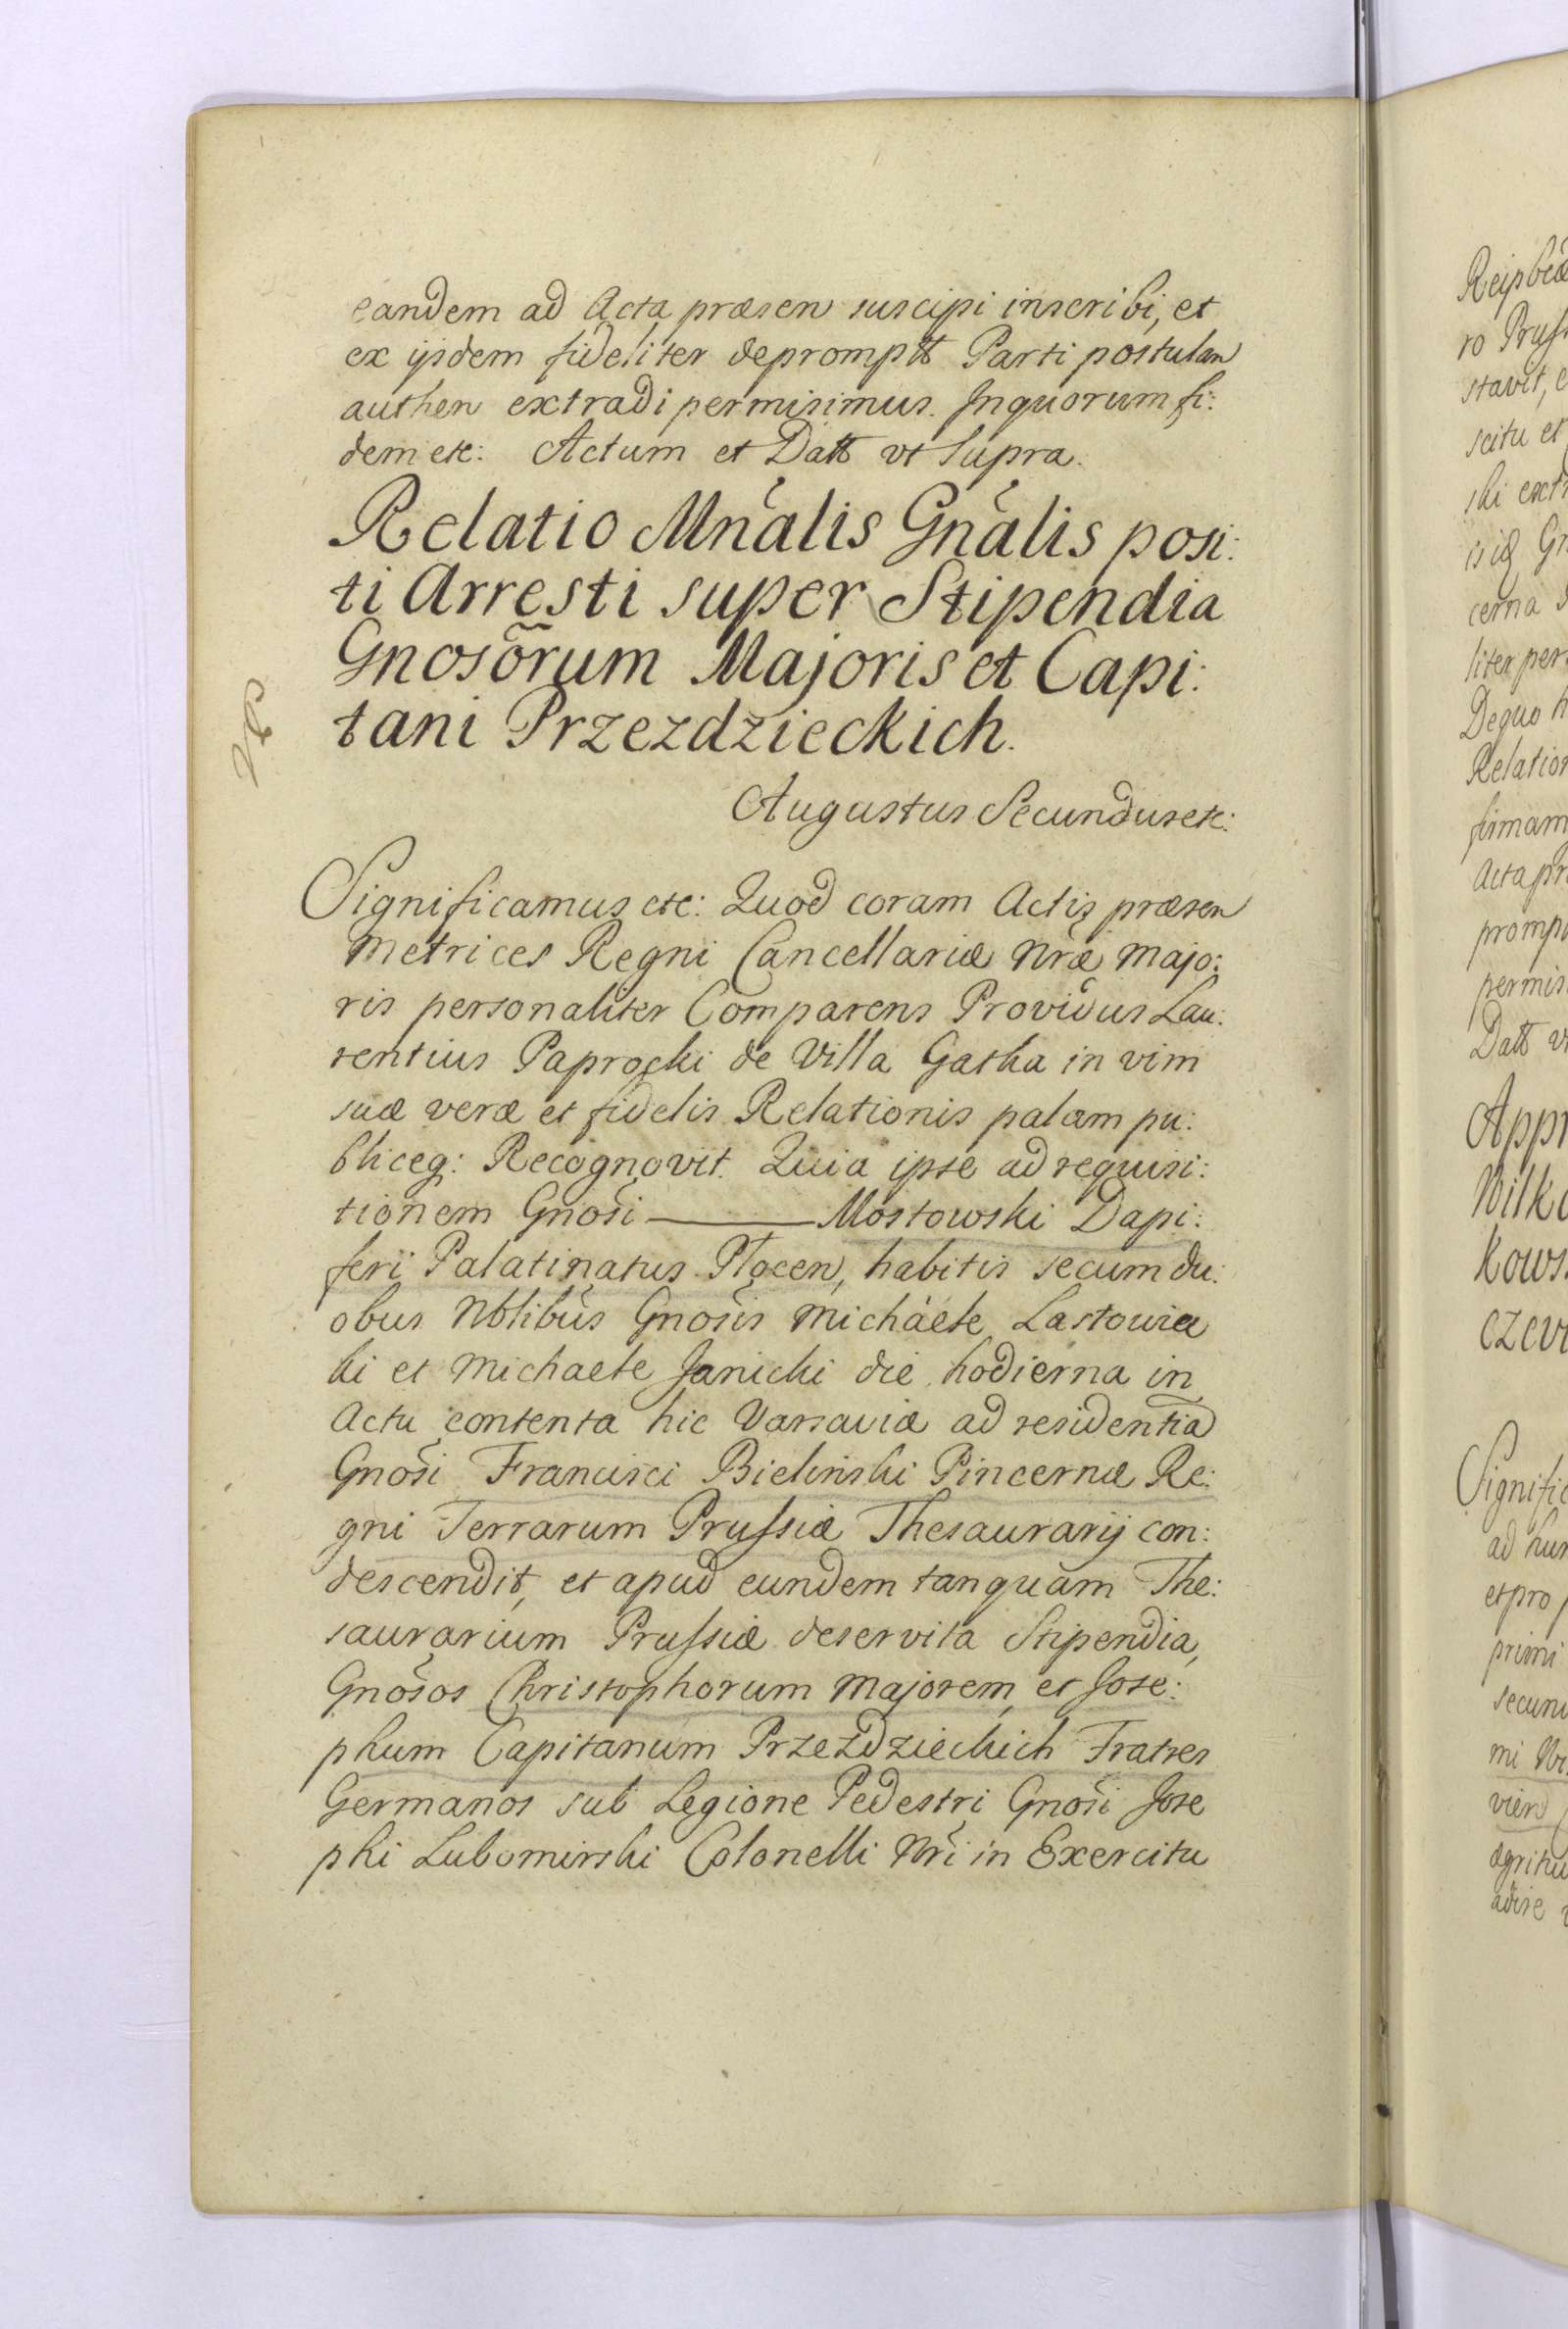 eandem ad Acta præsen suscipi inscribi, et
ex ijsdem fideliter deprompt Parti postulan
authen extradi permisimus. Inquorum fi:
dem etc: Actum et Datt vt Supra.
Relatio Mnalis Gnalis posi:
ti Arresti super Stipendia
Gnosorum Majoris et Capi:
tani Przezdzieckich.
Augustus Secundus etc:
Significamus etc: Quod coram Actis præsen
Metrices Regni Cancellariæ Nræ Majo:
ris personaliter Comparens Providus Lau:
rentius Paprocki de Villa Gatka in vim
suæ veræ et fidelis Relationis palam pu:
bliceq: Recognovit. Quia ipse ad requisi:
tionem Gnosi ——— Mostowski Dapi:
feri Palatinatus Płocen, habitis secum du:
obus Nblibus Gnosis Michaele Lastowiec
ki et Michaele Janicki die hodierna in
Actu contenta hic Varsaviæ ad residentia
Gnosi Francisci Bielinski Pincernæ Re:
gni Terrarum Prussiæ Thesaurarij con:
descendit, et apud eundem tanquam The:
saurarium Prussiæ deservita Stipendia,
Gnosos Christophorum Majorem, et Jose:
phum Capitanum Przezdzieckich Fratres
Germanos sub Legione Pedestri Gnosi Jose
phi Lubomirski Colonelli Nri in Exercitu
Reipbcæ
ro Pruss
stavit,
scitu et
ski extr
cerna
liter per
Dequo h
Relation
firmam
Acta pr
promp
permis
Datt v
Appr
Wilk
kows
czew
Signific
ad hun
et pro
primi
secun
mi
vien
ægritu
adire